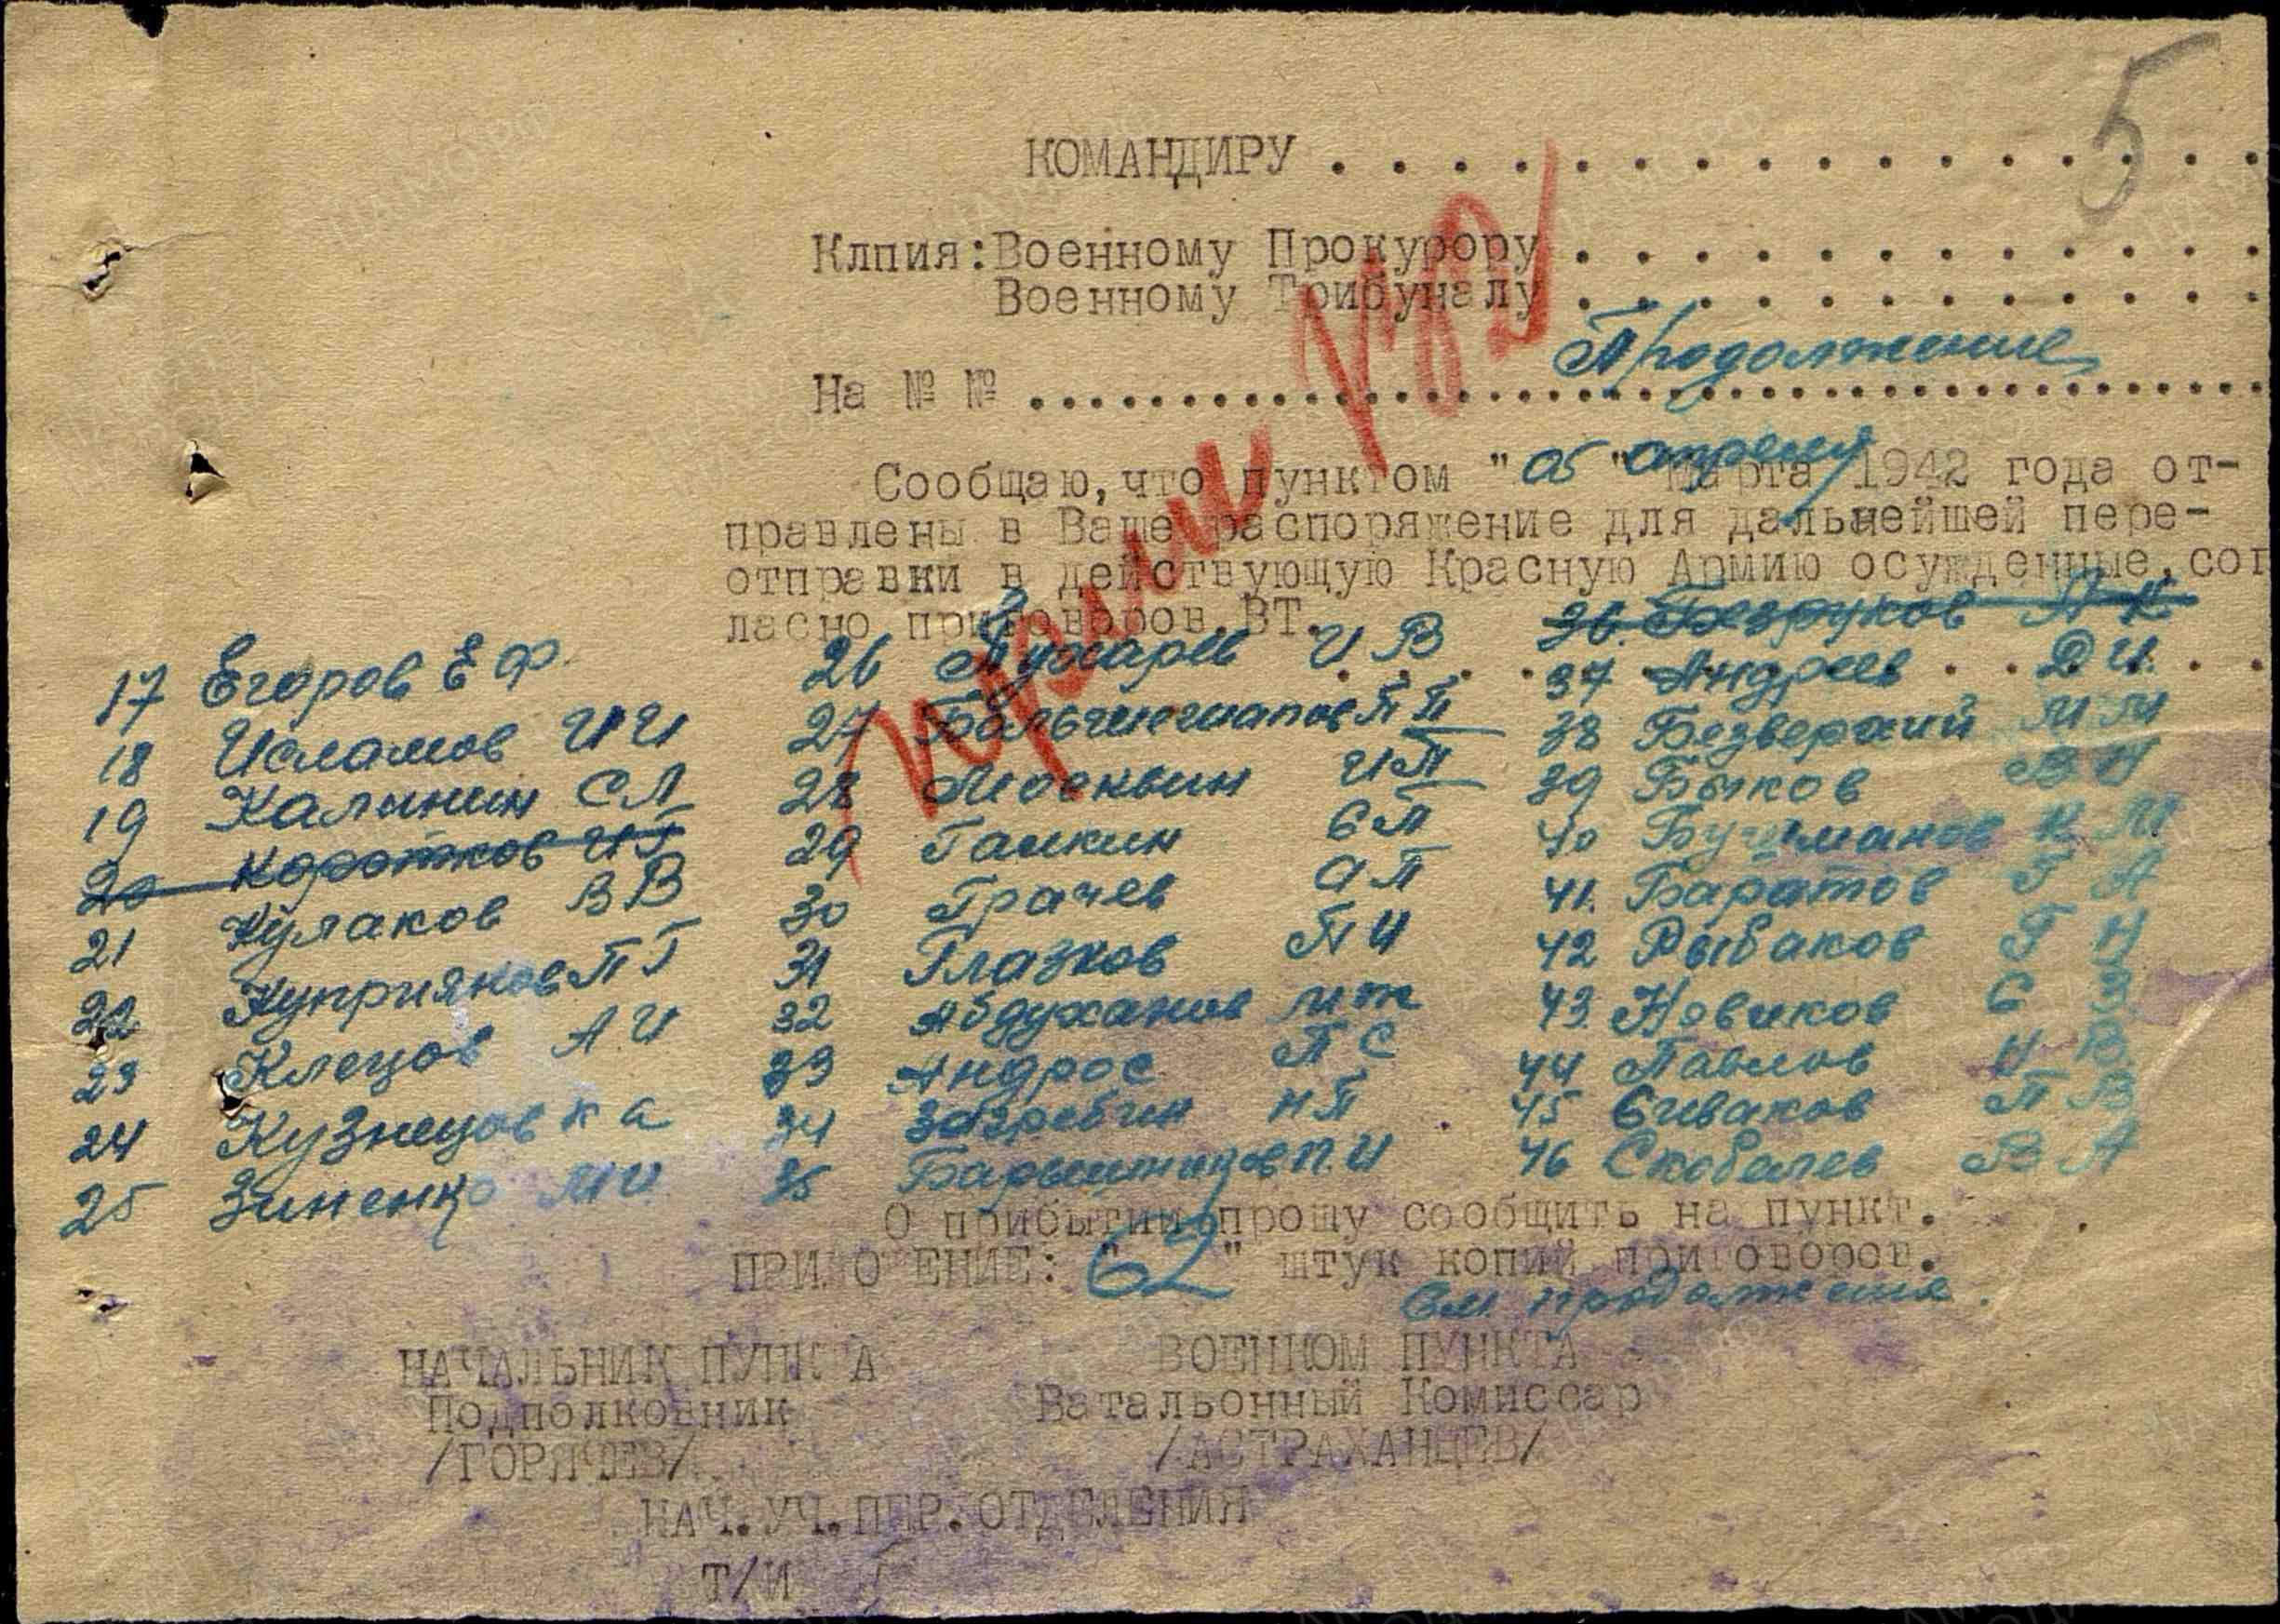 5
КОМАНДИРУ . . . . . . . . . . . . . . . .
Клпия:Военному Прокурору . . . . . . . . . . . .
Военному Трибуналу . . . . . . . . . . . .
Продолжение
На № № ........................................
Сообщаю,что пунктом "05" апреля марта 1942 года от-
правлены в Ваше распоряжение для дальнейшей пере-
отправки в действующую Красную Армию осужденные,сог
ласно приговоров ВТ.
17 Егоров Е Ф.
18 Исламов И И
19 Калинин С Л
20 Коротков И Г
21 Кулаков В В
22 Куприянов П Г
23 Клецов А. И
24 Кузнецов К А
25 Зиненко М И
26 Пухарев И В
27 П П
28 Москвин И П
29 Галкин С П
30 Грачев А П
31 Глазков П И
32 Абдуханов
33 Андрос П С
34 Загребин Н П
35 Барышников П. И
36. Безруков П К
37 Андреев Д И.
38 Безверхий М М
39 Быков В Н
40 К М
41. Баратов Г А
42 Рыбаков Г Н
43. Новиков С
44 Павлов Н В
45 Сиваков П В
46 Скобелев В А
О прибытии прошу сообщить на пункт.
ПРИЛОЖЕНИЕ: "62" штук копий приговоров.
См. продолжение.
НАЧАЛЬНИК ПУНКТА
Подполковник
/ГОРЯЧЕВ/
ВОЕНКОМ ПУНКТА
Батальонный Комиссар
/АСТРАХАНЦЕВ/
НАЧ.УЧ.ПЕР.ОТДЕЛЕНИЯ
Т/И